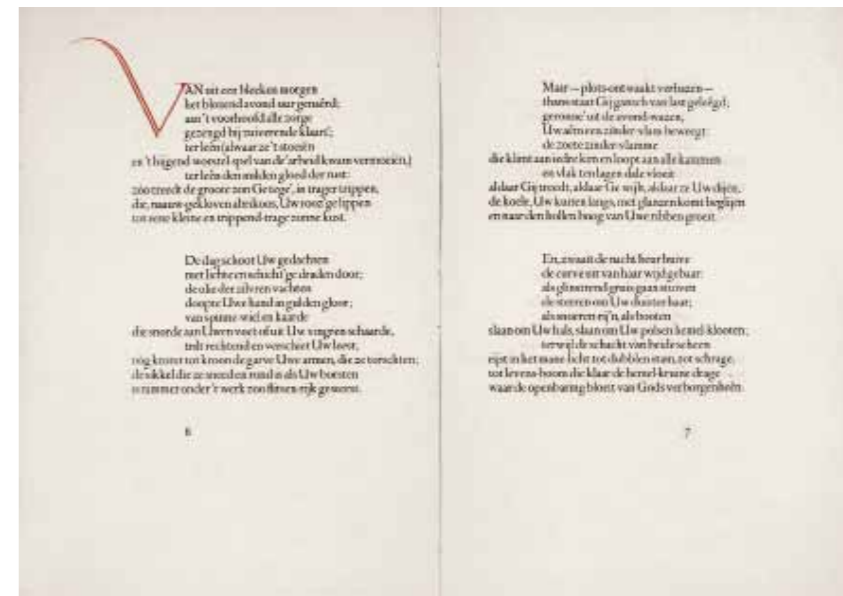 VAN uit een bleeken morgen
het blozend avond-uur genaêrd;
aan 't voorhoofd alle zorge
gezengd bij zuiverende klaart';
ter leên (alwaar ze 't stoeien
en 't hijgend worstel-spel van de' arbeid kwam vermoeien,)
ter leên den milden gloed der rust:
zóo treedt de groote zon Ge tege', in trager trippen,
die, nauw gekloven abrikoos, Uw rooz'ge lippen
tot eene kleine en trippend-trage zonne kust.
De dag schoot Uw gedachten
met lichte en schicht'ge draden door;
de olie der zilvren vachten
doopte Uwe hand in gulden gloor;
van spinne-wiel en kaarde
die snorde aan Uwen voet of uit Uw vingren schaarde,
trilt rechtend en verschiet Uw leest,
nóg kromt tot kroon de garve Uwe armen, die ze torschten;
de sikkel die ze sneed en rond is als Uw borsten
is rammer onder 't werk zoo flitsen-rijk geweest.
6
Maar — plots ontwaakt verbazen —
thans staat Gij gansch van last geleêgd;
geronne' uit de avond-wazen,
Uw aêm een zinder-vlam beweegt:
de zoete zinder-vlamme
die klimt aan iedre kem en loopt aan alle kammen
en vlak ten lagen dale vloeit
aldaar Gij treedt, aldaar Ge wijlt, aldaar ze Uw dijen,
de koele, Uw kuiten langs, met glanzen komt beglijen
en naar den hollen boog van Uwe ribben groeit.
En, zwaait de nacht heur huive
de curve uit van haar wijd gebaar:
als glinstrend gruis gaan stuiven
de sterren om Uw duister haar;
als snoeren rij'n, als booten
slaan om Uw hals, slaan om Uw polsen hemel-klooten;
terwijl de schacht van beide scheen
rijst in het mane-licht tot dubblen stam, tot schrage,
tot levens-boom die klaar de hemel-kruine drage
waar de openbaring bloeit van Gods verborgenheên.
7